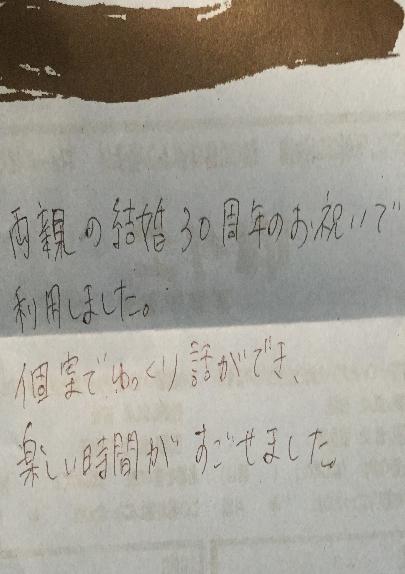 両親の結婚30周年のお祝いで
利用しました。
個室でゆっくり話ができ、
楽しい時間がすごせました。